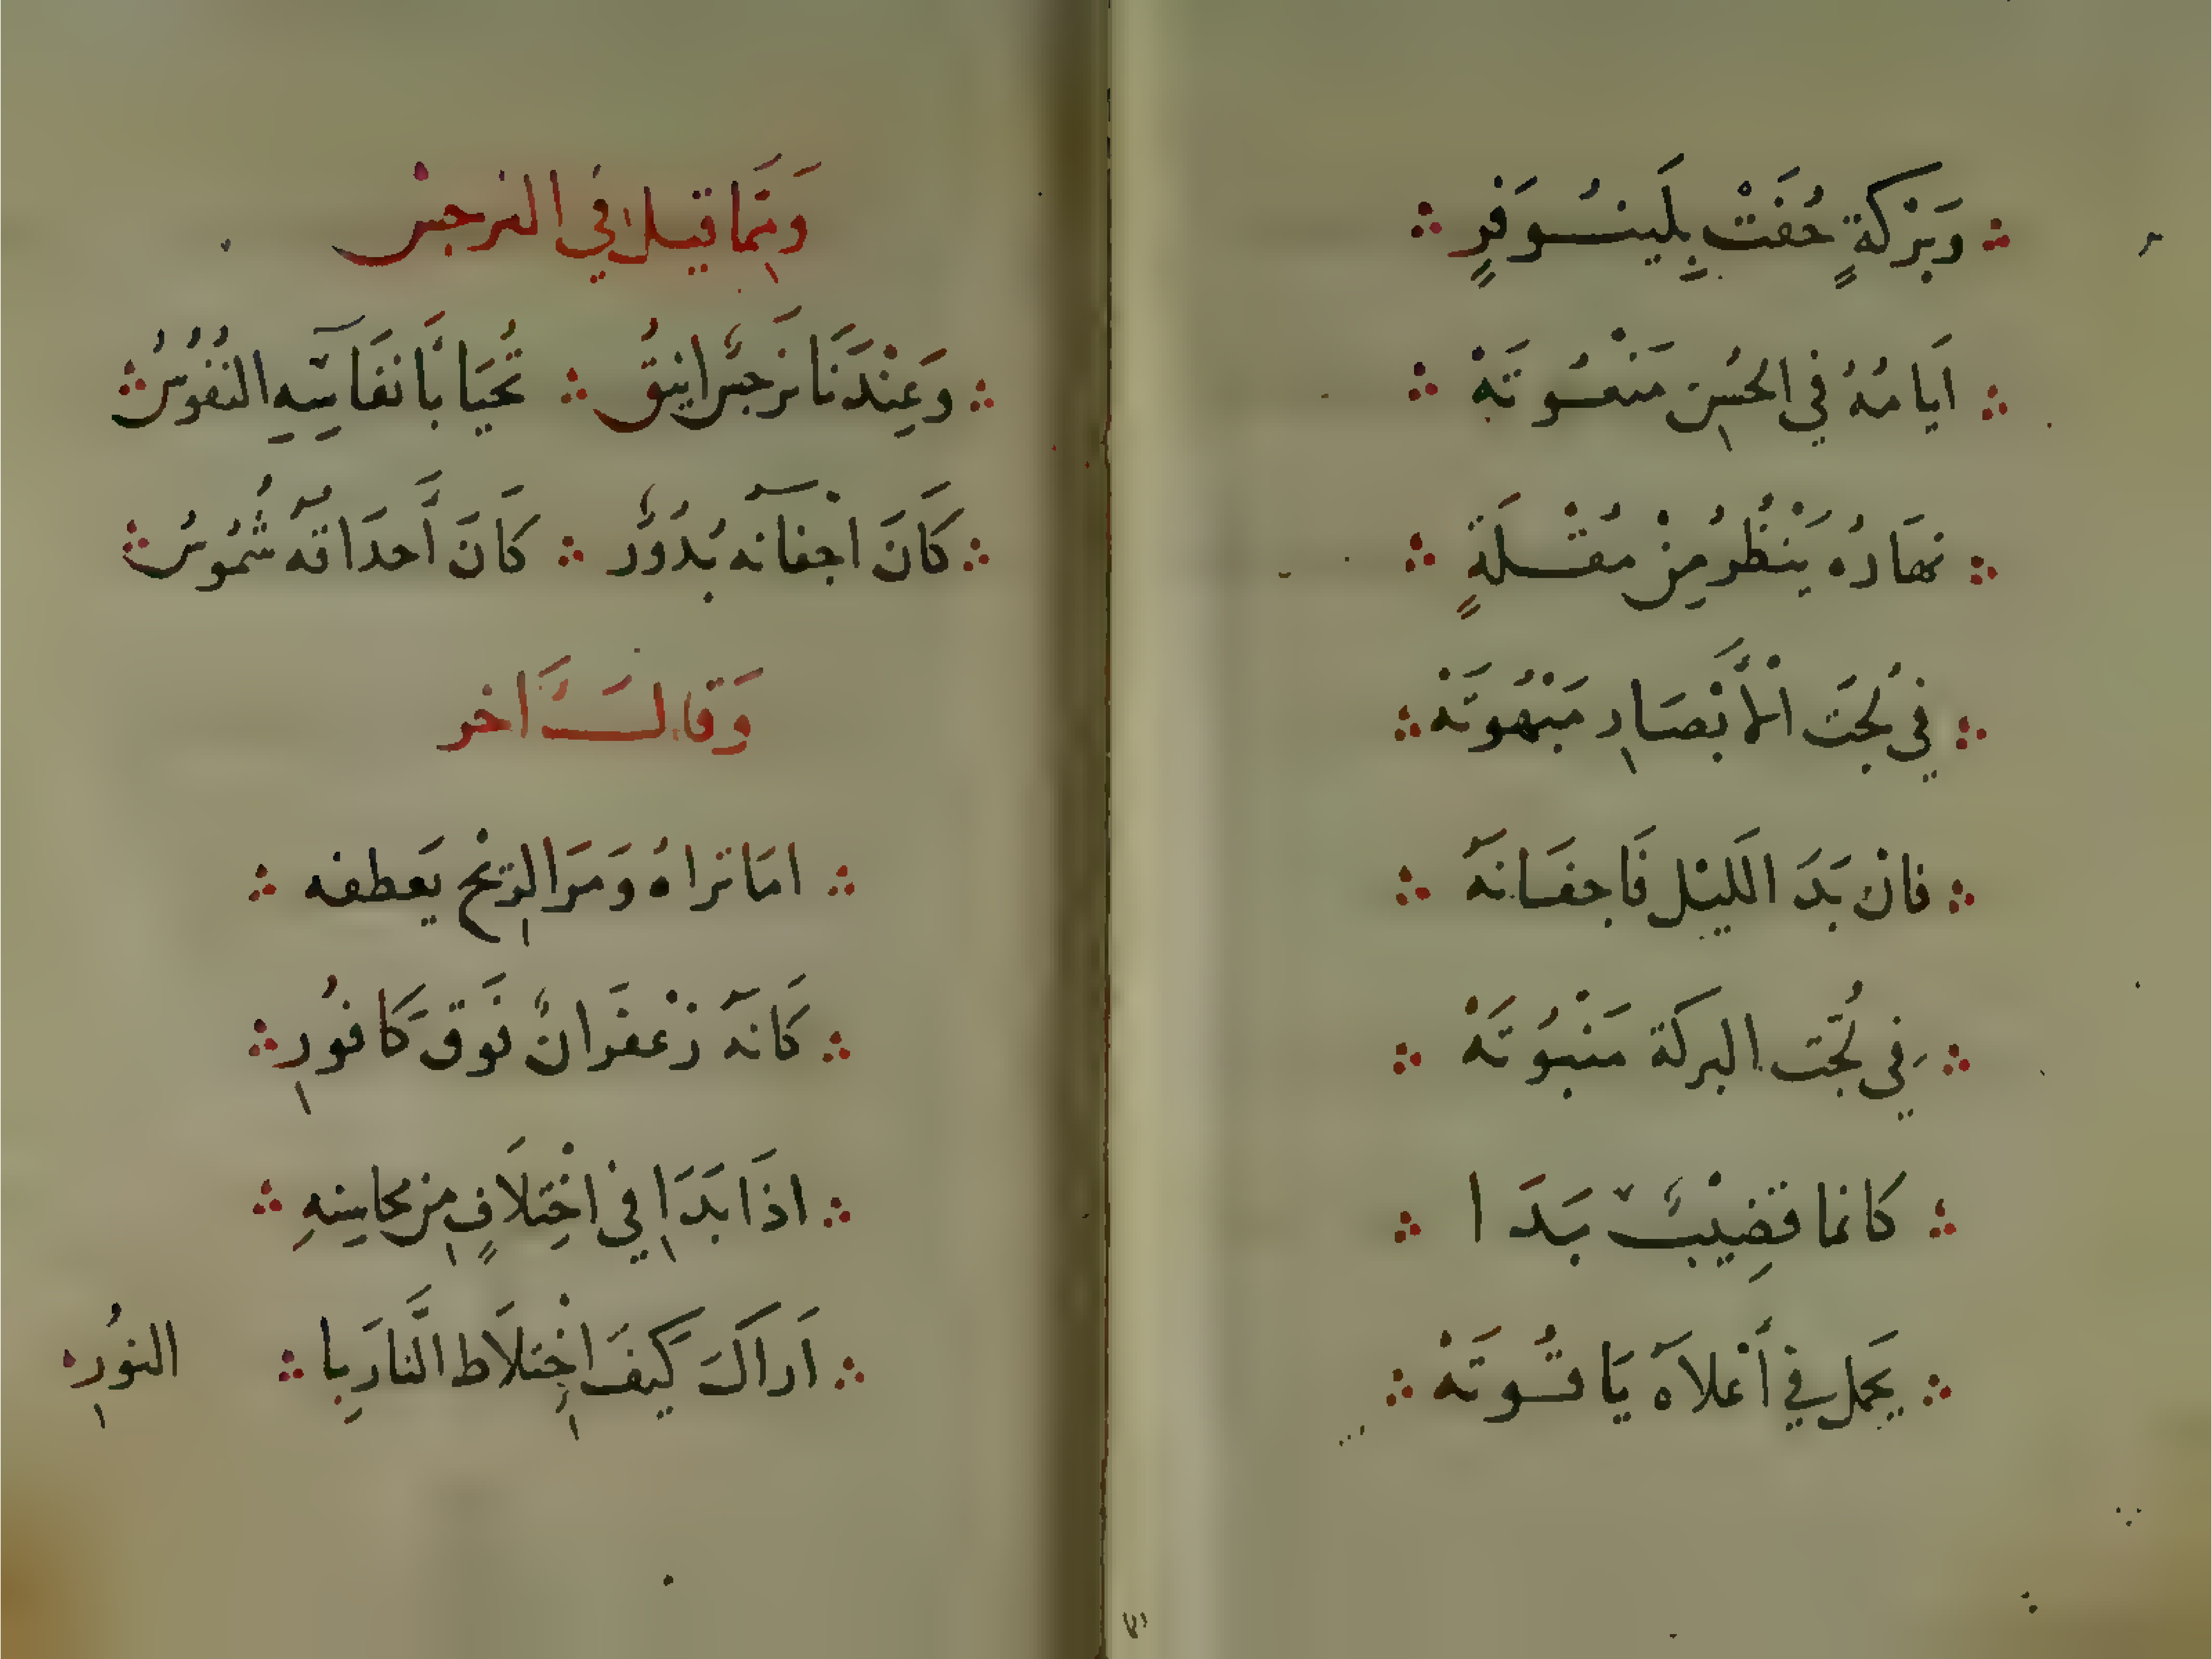 وَبَرْكَةٍ حُفَتْ بِلَينُوفَرٍ
اَيامُهُ فِي الحُسنِ مَنْعُوتَهْ
نَهَارُه يَنْظُرُ مِنْ مُقْلَةٍ
فِي لُجَتَ الْأَبْصَارِ مَبْهُوتَهْ
فان بَدَ اللَيْل فَاجفَانَهَ
فِي لُجَّت البركة مَنْبُوتَهْ
كانما قضِيْبٌ بَدَا
يحمل في أَعْلاَهَ يَاقُوتَهْ
وَمِمَّا قيل فِي النرجس
وَعِنْدَنَا نَرجسٌ انيقُ تُحْيَا بَانفَاسِهِ النُفُوسُ
كَانَ اجفانه بُدُورٌ كَانَ أَحدَاقَه شُمُوسُ
وَقَالَ اَخر
امَا تراهُ وَمَرَ الرِيْح يَعطفه
كَانهَ زَعْفَرَانٌ فَوقَ كَافُورِ
اذَا بَدَا فِي اخْتِلاَفٍ مِن محاسِنهِ
اَراكَ كَيفَ اخْتِلاَط النَّارَ بِا
النُورِ